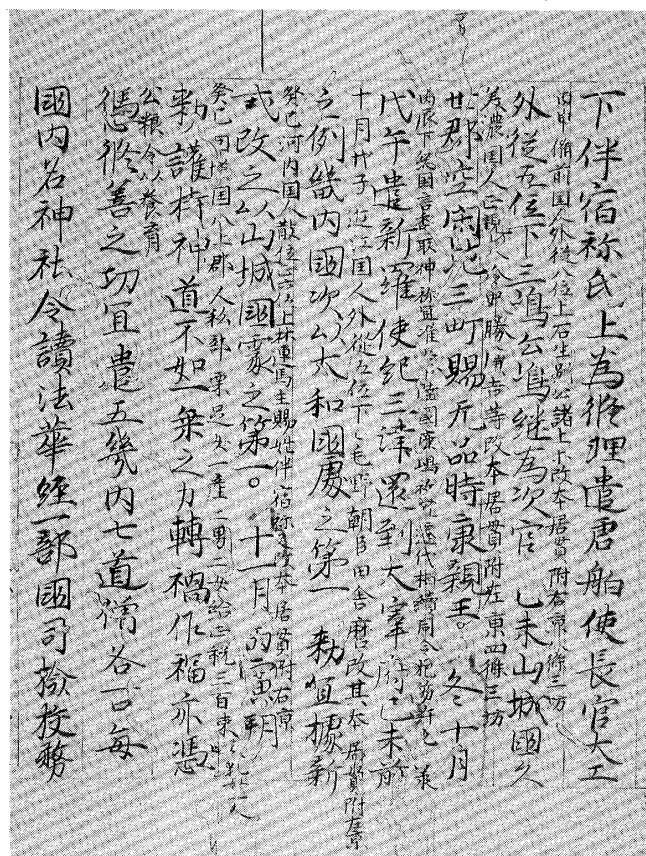 下伴宿祢氏上為修理遣唐舶使長官大工
丙申備前国人外從八位上石生別公諸上等改本居貫附右京八條三坊
外從五位下三嶋公嶋継為次官 乙未山城國久
美濃国人 等改本居貫附左京四條三坊
世郡空閑地三町賜无品時康親王。 冬十月
下総国言香取神祢宜准 陸國鹿嶋
戊午遣新羅使紀三津還到大宰府己未前
十月戊子近江国人外從五位下上毛野朝臣田舎麿改其本居貫附左京
之例畿内國次以大和國處之第一 勅宜據新
癸巳河内国人散位正六位上林連馬主賜姓伴宿祢 本居貫附右京
式改之以山城國處之第一。 十一月丙寅朔
癸巳 国八上郡人私部栗足女一産二男一女給正税三百束
勅護持神道不如一乘之力轉禍作福亦憑
公粮令以養育
憑修善之切宜遣五畿内七道僧各一口每
國内名神社令讀法華經一部國司檢挍務